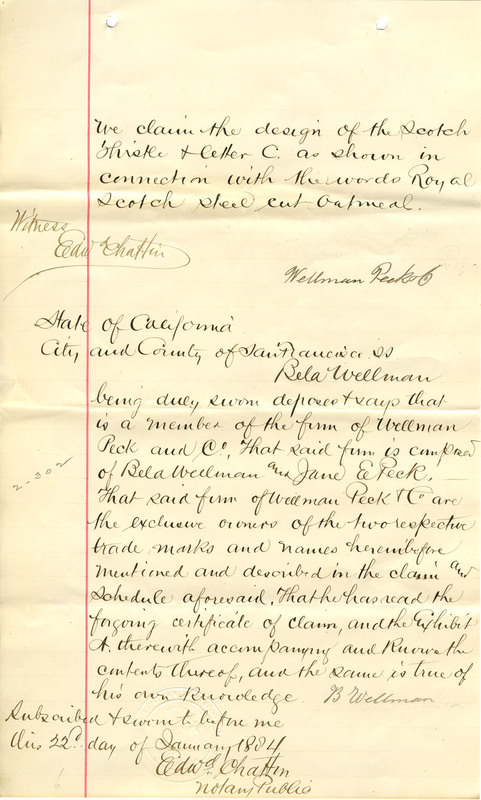 We claim the design of the Scotch
Thistle & letter C. as shown in
connection with the words Royal
Scotch steel cut Oatmeal.
Witness
Edwd Chattin
Wellman Peck & Co
State of California
City and County of San Francisco ss
Bela Wellman
being duly sworn deposes & says that
is a member of the firm of Wellman
Peck and Co, That said firm is composed
of Bela Wellman and Jane E Peck.
2-302
That said firm of Wellman Peck & Co are
the exclusive owners of the two respective
trade marks and names hereinbefore
mentioned and described in the claim and
schedule aforesaid, That he has read the
forgoing certificate of claim, and the Exhibit
A. therewith accompanying and knows the
contents thereof, and the same is true of
his own knowledge. B Wellman
Subscribed & sworn to before me
this 22d day of January 1884
Edwd Chattin
Notary Public